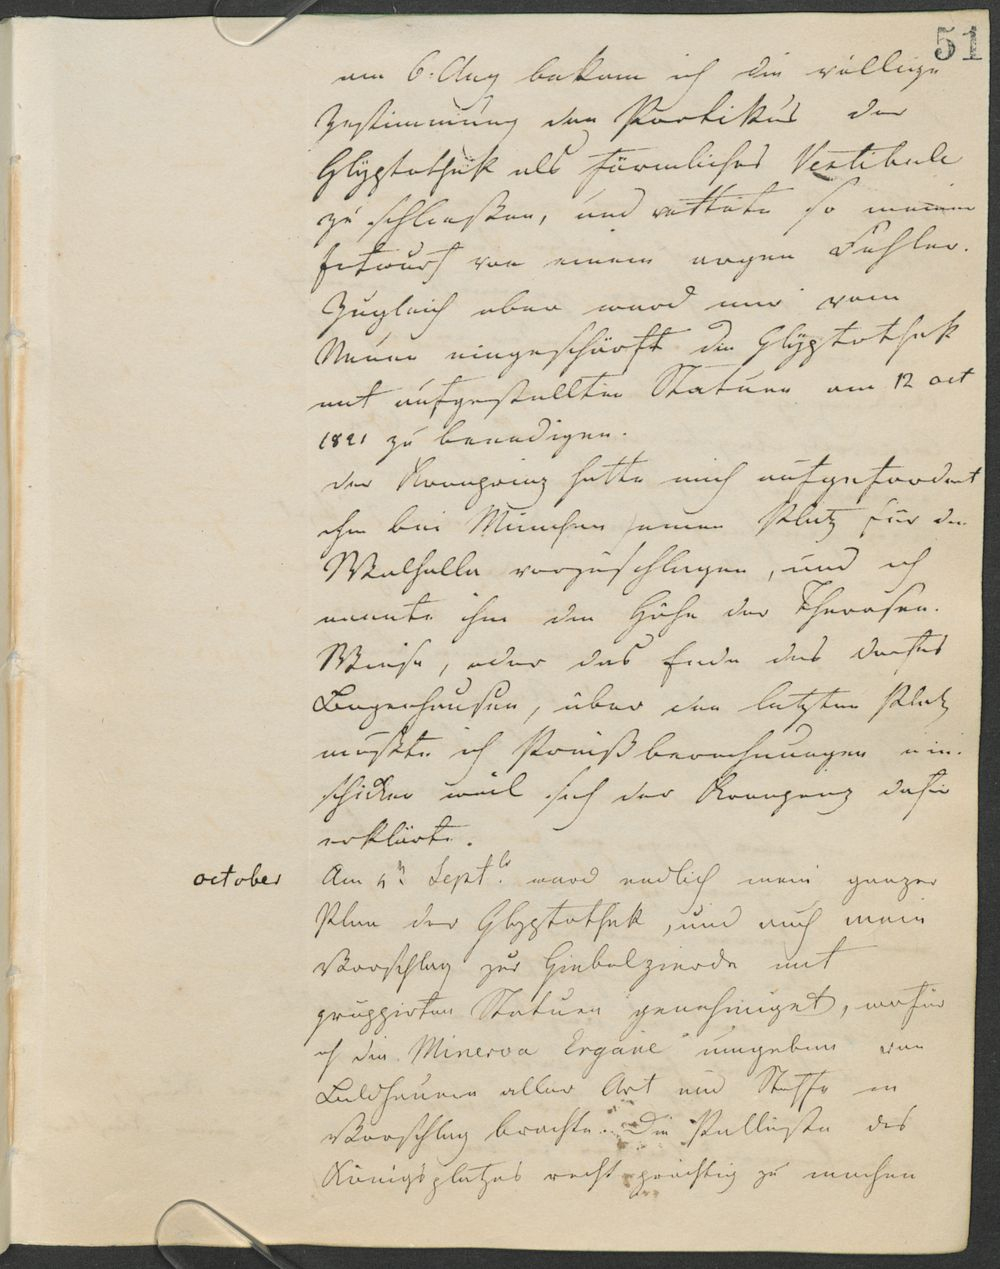 51
am 6. Aug bekam ich die völlige
Zustimmung den Portikus der
Glÿptothek als förmliches Vestibule
zu schließen, und rettete so meinen
Entwurf von einem argen Fehler.
Zugleich aber ward mir vom
Neuen eingeschärft die Glÿptothek
mit aufgestellten Statuen am 12 oct
1821 zu beendigen.
der Kronprinz hatte mich aufgefordert
ihm bei München einen Platz für die
Walhalla vorzuschlagen, und ich
nannte ihm die Höhe der Theresen-
Wiese, oder das Ende des Dorfes
Bogenhausen, über den letzten Platz
mußte ich Preißberechnungen ein-
schicken weil sich der Kronprinz dafür
erklärte.
october
Am Sept. ward endlich mein ganzer
Plan der Glyptothek, und auch mein
Vorschlag zur Giebelzierde mit
gruppirten Statuen genehmiget, wofür
ich die Minerva Ergane umgeben von
Bildhauern aller Art und Stoffe in
Vorschlag brachte. Die des
Königsplatzes recht prächtig zu machen